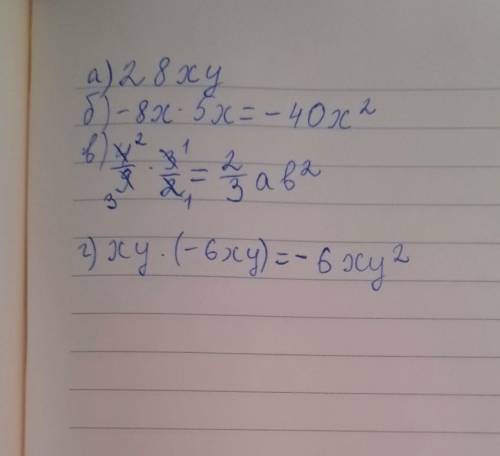 а) 28xy
б) -8x · 5x = -40x²
в) 4̸²/9̸₃ · 3̸¹/2̸₁ = 2/3 ab²
г) xy · (-6xy) = -6xy²